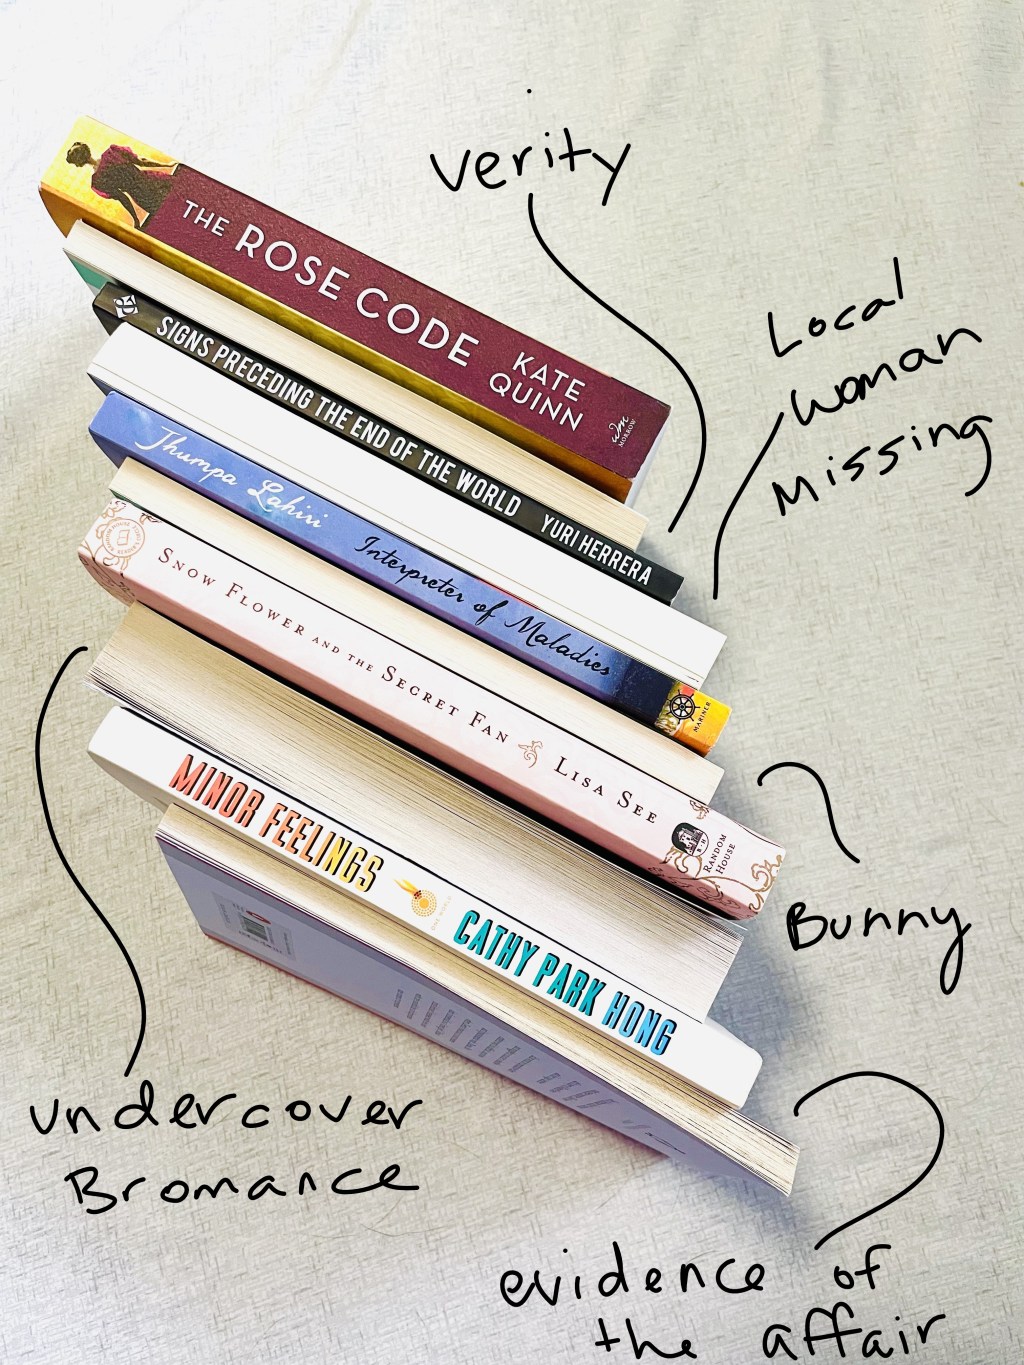 verity
Local
woman
Missing
THE ROSE CODE
KATE
QUINN
wm
MORROW
SIGNS PRECEDING THE END OF THE WORLD YURI HERRERA
Jhumpa Lahiri Interpreter of Maladies
MARINER
SNOW FLOWER AND THE SECRET FAN LISA SEE
RANDOM
HOUSE
Bunny
MINOR FEELINGS CATHY PARK HONG
undercover
Bromance
evidence of
the affair